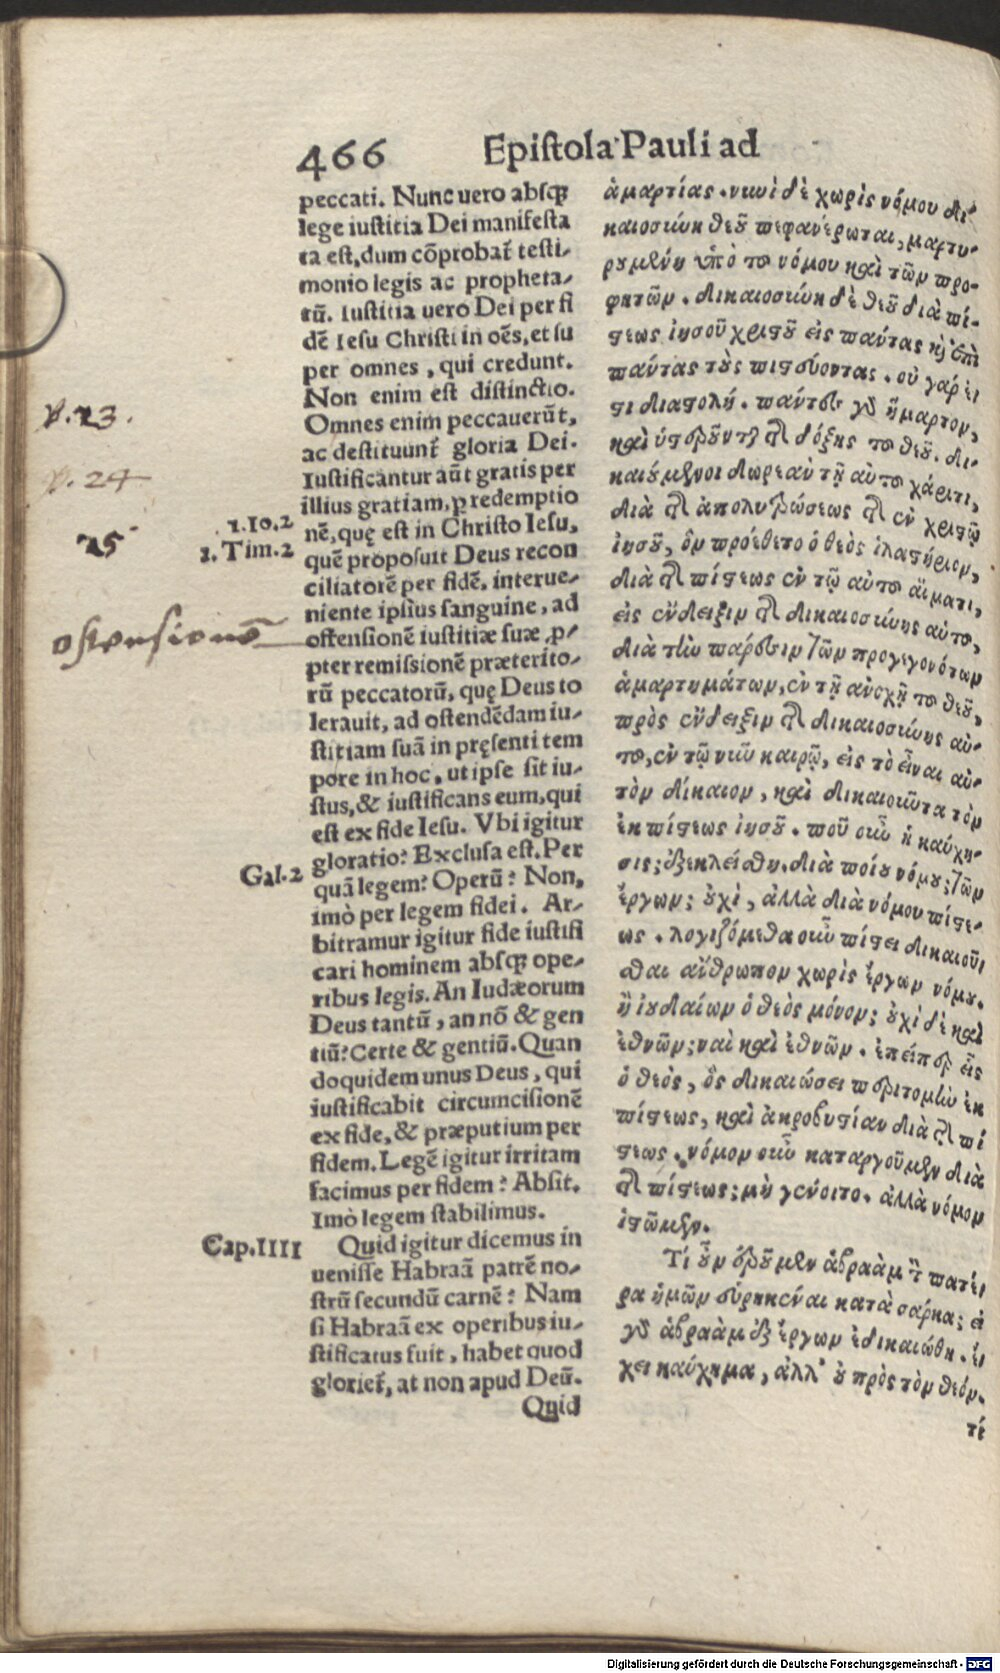 466 Epiſtola Pauli ad
peccati. Nunc uero abſq;
lege iuſtitia Dei manifeſta
ta eſt, dum cõprobat᷑ teſti-
monio legis ac propheta-
rũ. Iuſtitia uero Dei per fi
dẽ Ieſu Chriſti in oẽs, et ſu
per omnes, qui credunt.
Non enim eſt diſtinctio.
Omnes enim peccauerũt,
ac deſtituunt᷑ gloria Dei.
Iuſtificantur aũt gratis per
illius gratiam, ꝑ redemptio
nẽ, quę eſt in Chriſto Ieſu,
quẽ propoſuit Deus recon
ciliatorẽ per fidẽ, interue-
niente ipſius ſanguine, ad
oſtenſionẽ iuſtitiæ ſuæ ꝓ-
pter remiſsionẽ præterito-
rũ peccatorũ, quę Deus to
lerauit, ad oſtendẽdam iu-
ſtitiam ſuã in pręſenti tem
pore in hoc, ut ipſe ſit iu-
ſtus, & iuſtificans eum, qui
eſt ex fide Ieſu. Vbi igitur
gloratio? Excluſa eſt. Per
quã legem? Operũ? Non,
imò per legem fidei. Ar-
bitramur igitur fide iuſtifi
cari hominem abſq; ope-
ribus legis. An Iudæorum
Deus tantũ, an nõ & gen
tiũ? Certe & gentiũ. Quan
doquidem unus Deus, qui
iuſtificabit circumciſionẽ
ex fide, & præputium per
fidem. Legẽ igitur irritam
facimus per fidem? Abſit.
Imò legem ſtabilimus.
Quid igitur dicemus in
ueniſſe Habraã patrẽ no-
ſtrũ ſecundũ carnẽ? Nam
ſi Habraã ex operibus iu-
ſtificatus fuit, habet quod
gloriet᷑, at non apud Deũ.
Quid
v. 23.
v. 24
25
1.Io.2
1. Tim.2
oſtenſionẽ
Gal.2
Cap.IIII
ἁμαρτίας. νυνὶ δὲ χωρὶς νόμου δι-
καιοσύνη θεοῦ πεφανέρωται, μαρτυ-
ρουμένη ὑπὸ τοῦ νόμου καὶ τῶν προ-
φητῶν. δικαιοσύνη δὲ θεοῦ διὰ πί-
στεως ἰησοῦ χριστοῦ εἰς πάντας καὶ ἐπὶ
πάντας τοὺς πιστεύοντας. οὐ γάρ ἐι
στι διαστολή. πάντες γὰρ ἥμαρτον,
καὶ ὑστεροῦνται τῆς δόξης τοῦ θεοῦ. δι-
καιούμενοι δωρεὰν τῇ αὐτοῦ χάριτι,
διὰ τῆς ἀπολυτρώσεως τῆς ἐν χριστῷ
ἰησοῦ, ὃν προέθετο ὁ θεὸς ἱλαστήριον,
διὰ τῆς πίστεως ἐν τῷ αὐτοῦ αἵματι,
εἰς ἔνδειξιν τῆς δικαιοσύνης αὐτοῦ,
διὰ τὴν πάρεσιν τῶν προγεγονότων
ἁμαρτημάτων, ἐν τῇ ἀνοχῇ τοῦ θεοῦ,
πρὸς ἔνδειξιν τῆς δικαιοσύνης αὐ-
τοῦ, ἐν τῷ νῦν καιρῷ, εἰς τὸ εἶναι αὐ-
τὸν δίκαιον, καὶ δικαιοῦντα τὸν
ἐκ πίστεως ἰησοῦ. ποῦ οὖν ἡ καύχη-
σις; ἐξεκλείσθη. διὰ ποίου νόμου; τῶν
ἔργων; οὐχὶ, ἀλλὰ διὰ νόμου πίστε-
ως. λογιζόμεθα οὖν πίστει δικαιοῦσ
θαι ἄνθρωπον χωρὶς ἔργων νόμου.
ἢ ἰουδαίων ὁ θεὸς μόνον; οὐχὶ δὲ καὶ
ἐθνῶν; ναὶ καὶ ἐθνῶν. ἐπείπερ εἷς
ὁ θεὸς, ὃς δικαιώσει περιτομὴν ἐκ
πίστεως, καὶ ἀκροβυστίαν διὰ τῆς πί
στεως. νόμον οὖν καταργοῦμεν διὰ
τῆς πίστεως; μὴ γένοιτο. ἀλλὰ νόμον
ἱστῶμεν.
Τί οὖν ἐροῦμεν ἀβραὰμ τὸν πατέ
ρα ἡμῶν εὑρηκέναι κατὰ σάρκα; εἰ
γὰρ ἀβραὰμ ἐξ ἔργων ἐδικαιώθη. ἔι
χει καύχημα, ἀλλ' οὐ πρὸς τὸν θεόν.
τί
Digitalisierung gefördert durch die Deutsche Forschungsgemeinschaft - DFG